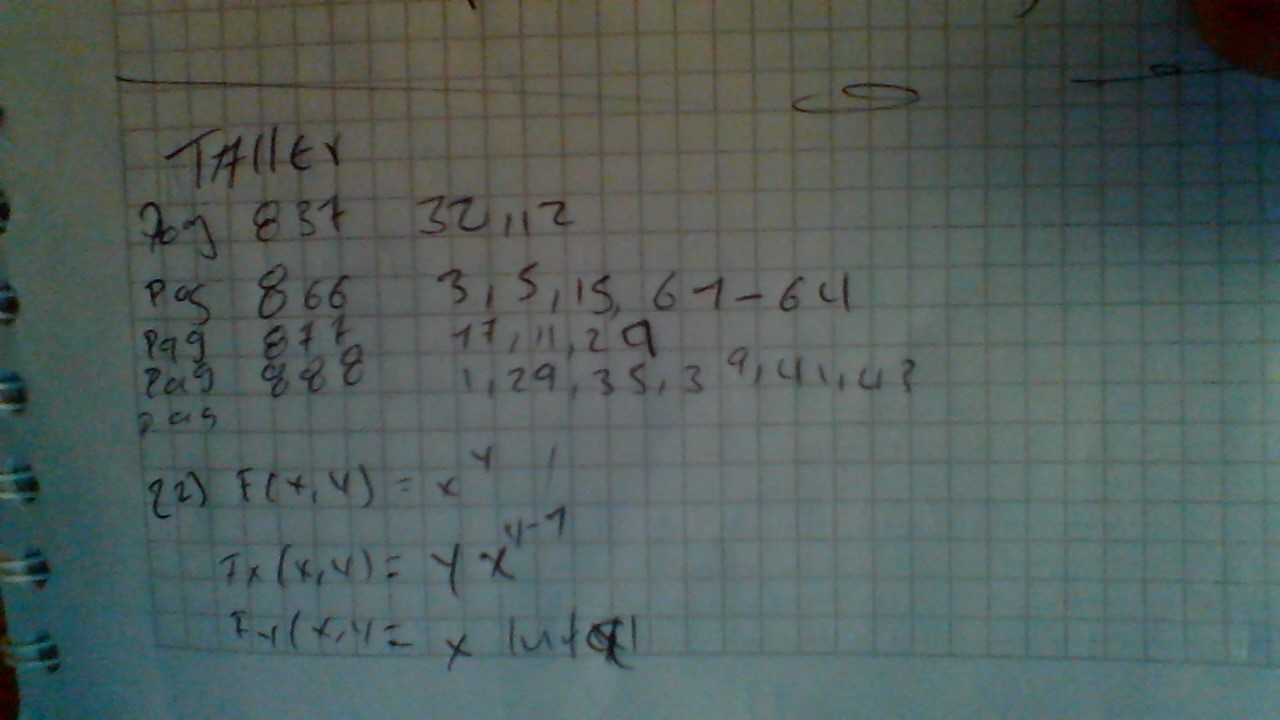 TAller
Pag 837 32, 12
Pag 866 3, 5, 15, 61-64
Pag 877 17, 11, 29
Pag 888 1, 29, 35, 39, 41, 43
Pag
22) F(x,y) = x^y
Fx(x,y) = y x^y-1
Fy(x,y = x ln